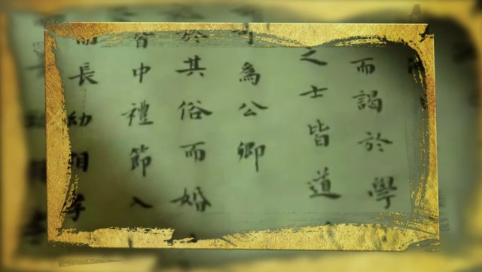 而謁於學
之士皆道
為公卿
於其俗而婚
皆中禮節入
而長幼相孝